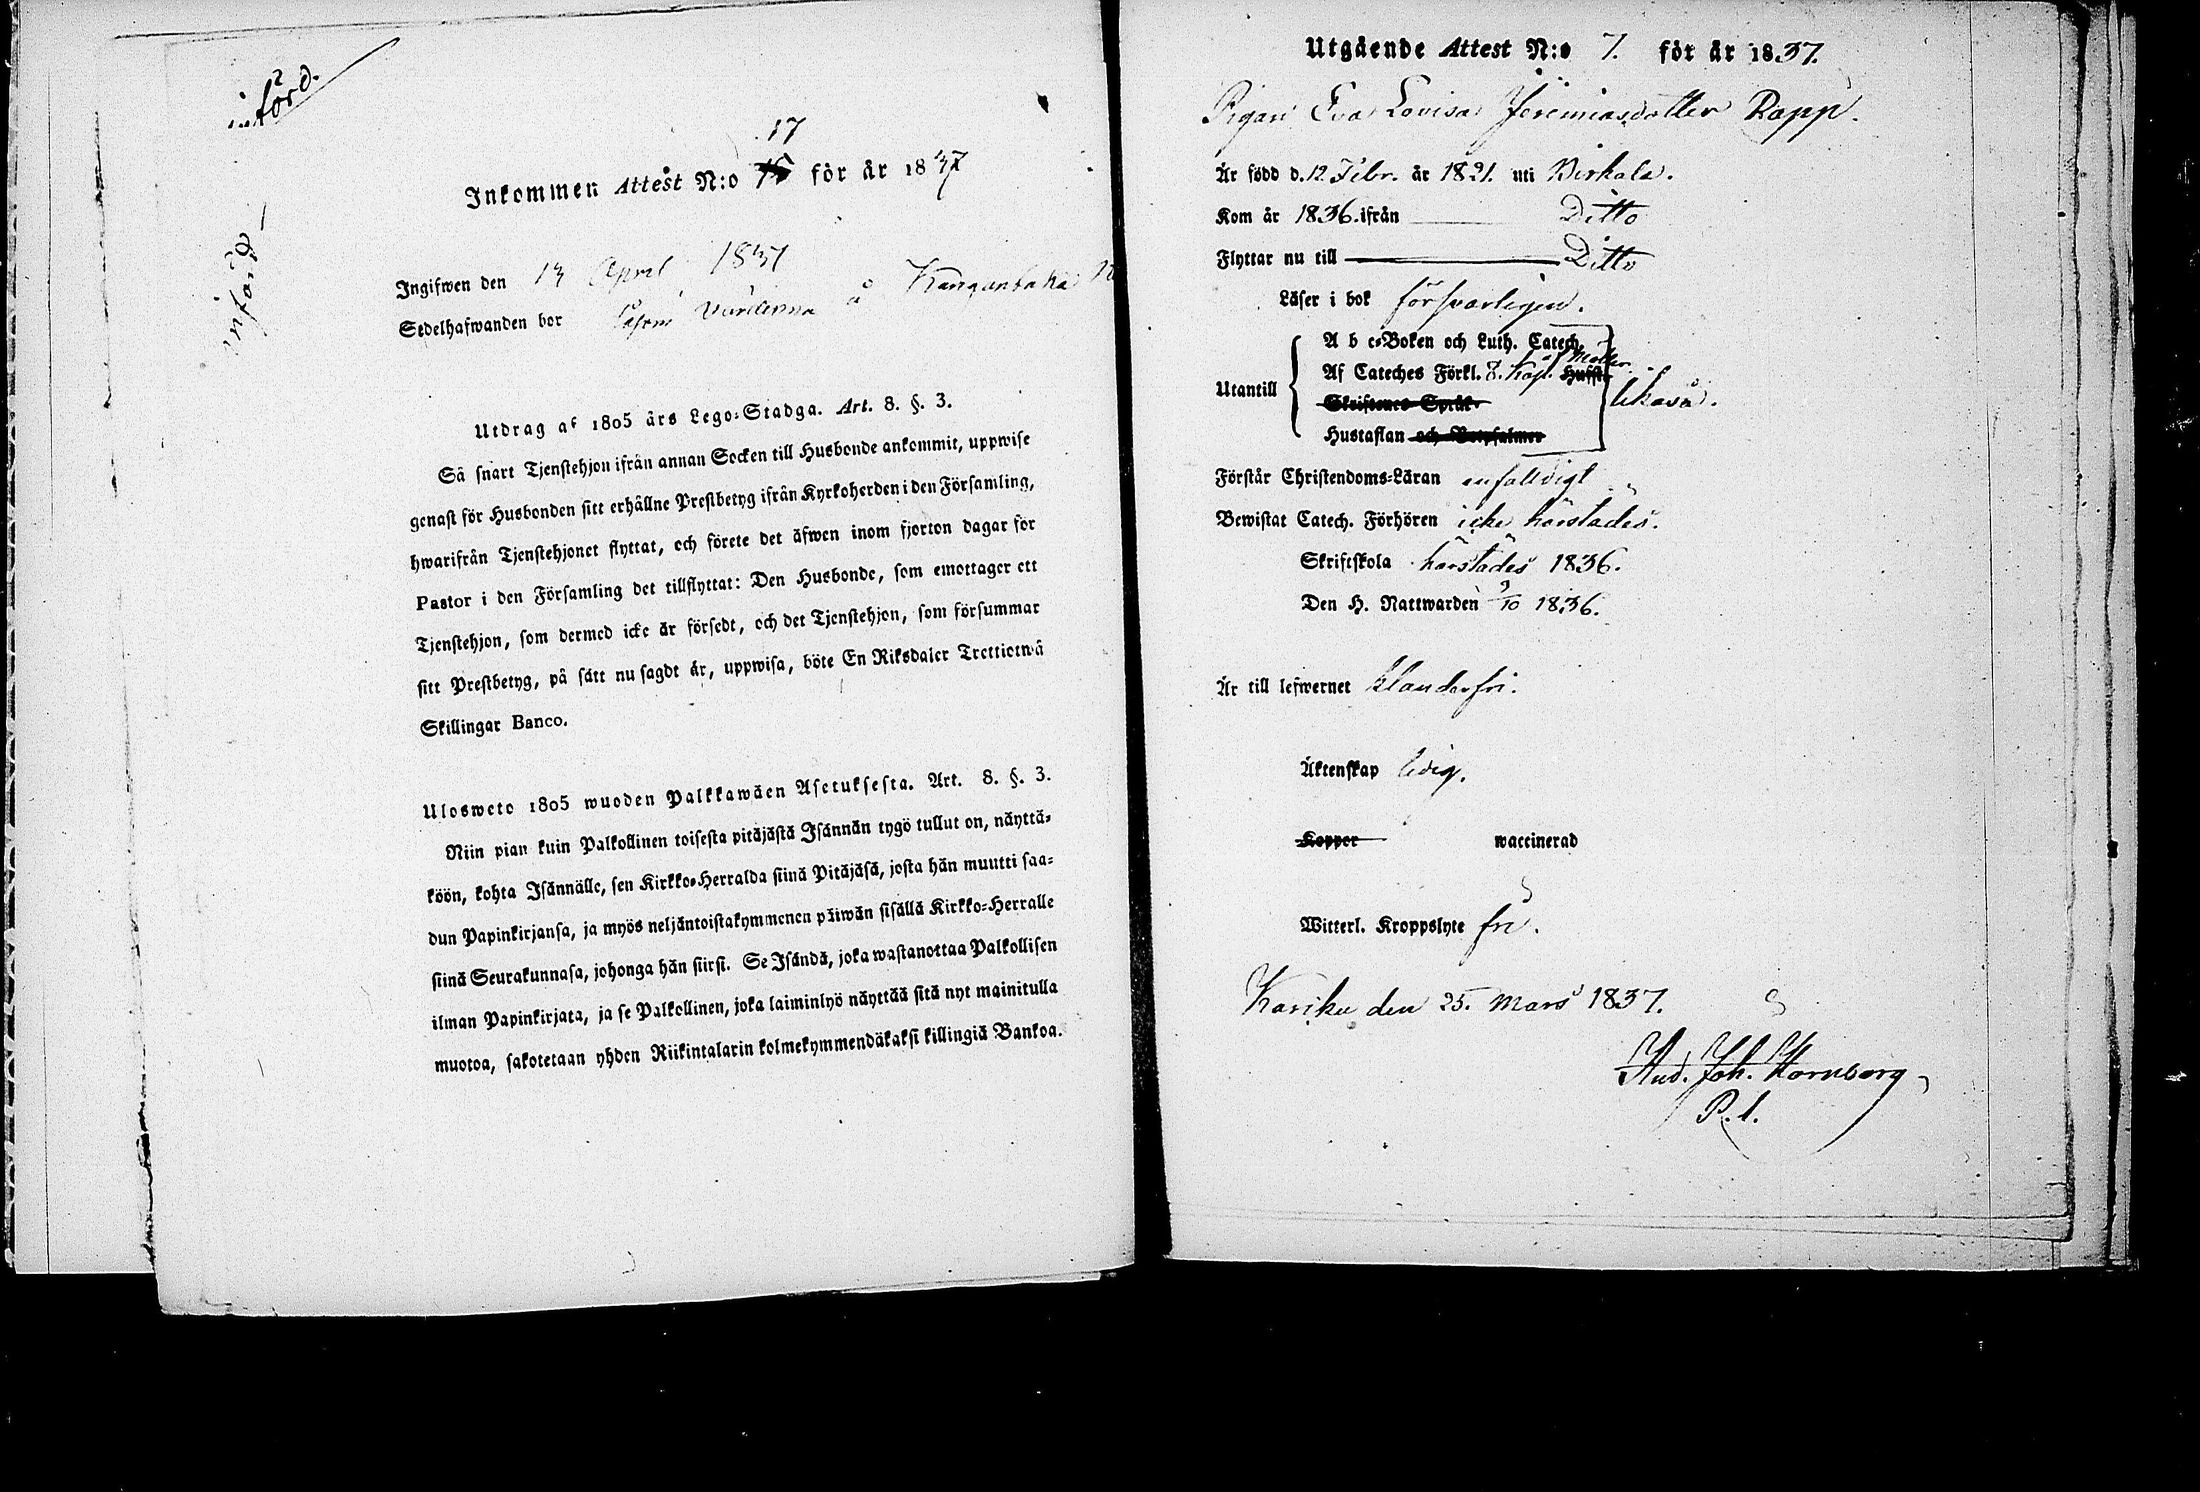 införd.
införd
17
Inkommen Attest N:o 15 för år 1837
Ingifwen den 13 April 1837
Sedelhafwanden bor såsom Värdinna å Kangasala
Utdrag af 1805 års Lego-Stadga. Art. 8. §. 3.
Så snart Tjenstehjon ifrån annan Socken till Husbonde ankommit, uppwise
genast för Husbonden sitt erhållne Prestbetyg ifrån Kyrkoherden i den Församling,
hwarifrån Tjenstehjonet flyttat, och förete det äfwen inom fjorton dagar för
Pastor i den Församling det tillflyttat: Den Husbonde, som emottager ett
Tjenstehjon, som dermed icke är försedt, och det Tjenstehjon, som försummar
sitt Prestbetyg, på sätt nu sagdt är, uppwisa, böte En Riksdaler Trettiotwå
Skillingar Banco.
Ulosweto 1805 wuoden Palkkawäen Asetuksesta. Art. 8. §. 3.
Niin pian kuin Palkollinen toisesta pitäjästä Isännän tygö tullut on, näyttä-
köön, kohta Isännälle, sen Kirkko-Herralda siinä Pitäjäsä, josta hän muutti saa-
dun Papinkirjansa, ja myös neljäntoistakymmenen päiwän sisällä Kirkko-Herralle
siinä Seurakunnasa, johonga hän siirsi. Se Isändä, joka wastanottaa Palkollisen
ilman Papinkirjata, ja se Palkollinen, joka laiminlyö näyttää sitä nyt mainitulla
muotoa, sakotetaan yhden Riikintalarin kolmekymmendäkaksi killingiä Bankoa.
Utgående Attest N:o 7. för år 1837.
Pigan Eva Lovisa Jeremiasdotter Rapp.
Är född d. 12 Febr. år 1821. uti Birkala.
Kom år 1836. ifrån Ditto
Flyttar nu till Ditto
Läser i bok försvarligen.
A b c-Boken och Luth. Catech.
af Möller.
Utantill Af Cateches Förkl. 8. Kap. Husst. likaså.
Skriftenes Språk
Hustaflan och Botpsalmer
Förstår Christendoms-Läran enfalldigt
Bewistat Catech. Förhören icke härstädes.
Skriftskola härstädes 1836.
Den H. Nattwarden 9/10 1836.
Är till lefwernet klanderfri.
Äktenskap ledig.
Koppor waccinerad
Witterl. Kroppslyte fri.
Kariku den 25. Mars 1837.
And. Joh. Hornborg
P. l.